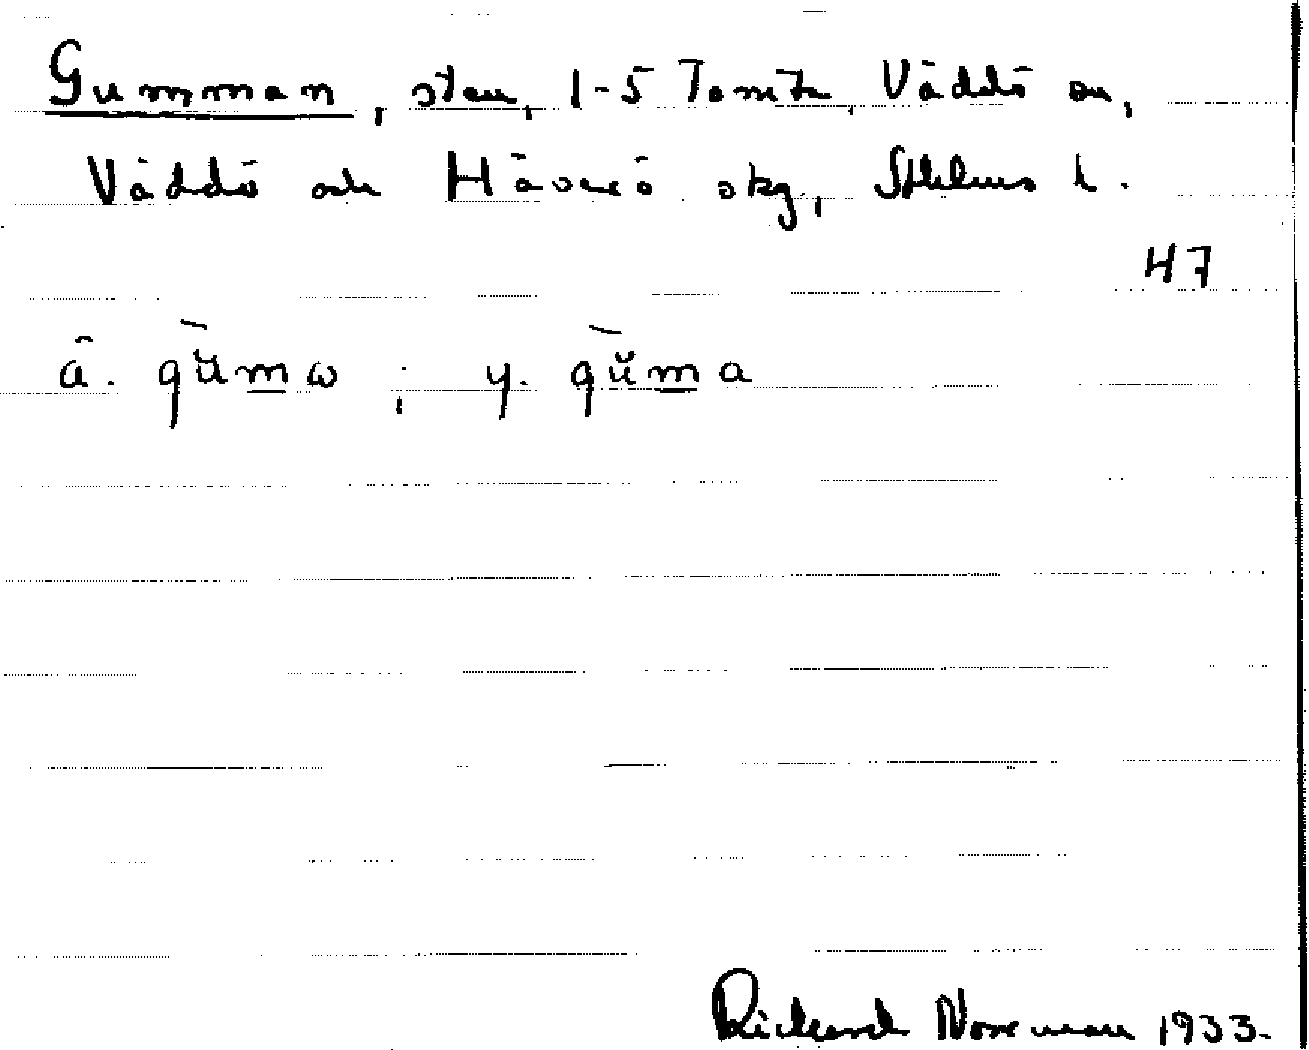 Gumman, sten, 1-5 Tomta, Väddö sn,
Väddö och Häverö skg, Sthlms l.
47
ä. gŭm̲ω ; y. gŭm̲a
Rickard Norrman 1933.